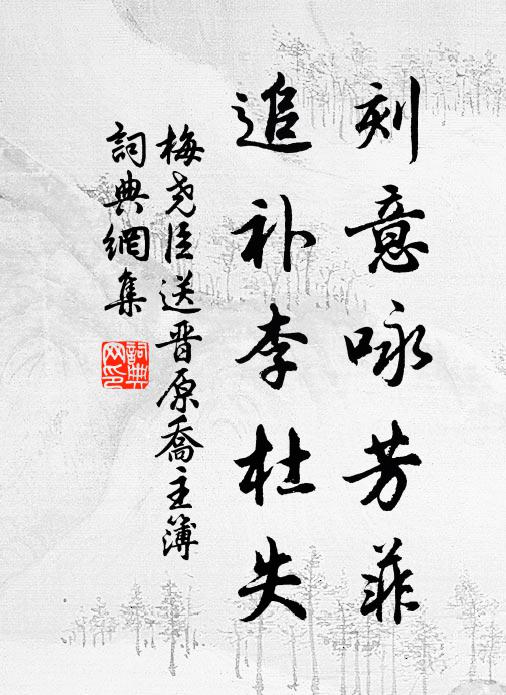 刻意咏芳菲
追补李杜失
梅尧臣送晋原喬主簿
詞典網集
詞典
网印